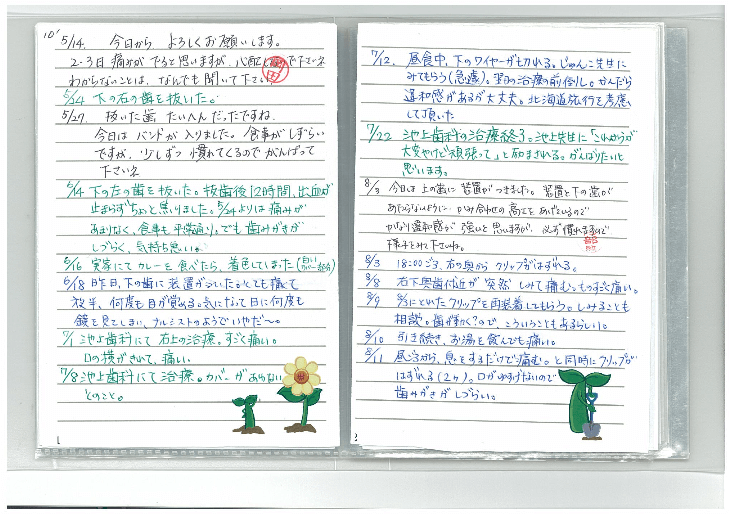 10'
5/14. 今日から よろしくお願いします。
2・3日 痛みが でると思いますが、心配しないで下さいネ
わからないことは、なんでも聞いて下さい。
5/24 下の右の歯を抜いた。
5/27. 抜いた歯 たいへんだったですね.
今日は バンドが入りました。食事がしずらい
ですが、少しずつ慣れてくるのでがんばって
下さいネ
6/14 下の左の歯を抜いた。抜歯後12時間、出血が
止まらずちょっと焦りました。5/24よりは痛みが
あまりなく、食事も平常通り。でも歯みがきが
しづらく、気持ち悪い。
6/16 実家にてカレーを食べたら、着色していました
6/18 昨日、下の歯に装置がついた。とても痛くて
夜半、何度も目が覚める。気になって日に何度も
鏡を見てしまい、ナルシストのようでいやだ〜。
7/1 池上歯科にて右上の治療。すごく痛い。
口の横がきれて、痛い
7/8 池上歯科にて治療。カバーがあわない
とのこと。
1
7/12. 昼食中、下のワイヤーがもげれる。じゅんこ先生に
みてもらう(急遽)。翌日の治療の前倒し。かんだら
違和感があるが大丈夫。北海道旅行を考慮
して頂いた
7/22 池上歯科の治療終了。池上先生に「これからが
大変やけど頑張って」と励まされる。がんばりたいと
思います。
8/3 今日は上の歯に装置がつきました。装置と下の歯が
あたらないように かみ合わせの高さをあげているので
かなり違和感が強いと思いますが、必ず慣れますので
様子をみて下さいね。
8/3 18:00ごろ、右の奥から クリップがはずれる。
8/8 右下奥歯付近が突然しみて痛む。ものすごく痛い。
8/9 8/3にとれたクリップを再装着してもらう。しみることも
相談。歯が動く?ので、こういうこともあるらしい。
8/10 引き続き、お湯を飲んでも痛い。
8/11 昼ころから、息をするだけで痛む。と同時にクリップが
はずれる(2ヶ)。口がゆすげないので
歯みがきがしづらい。
2